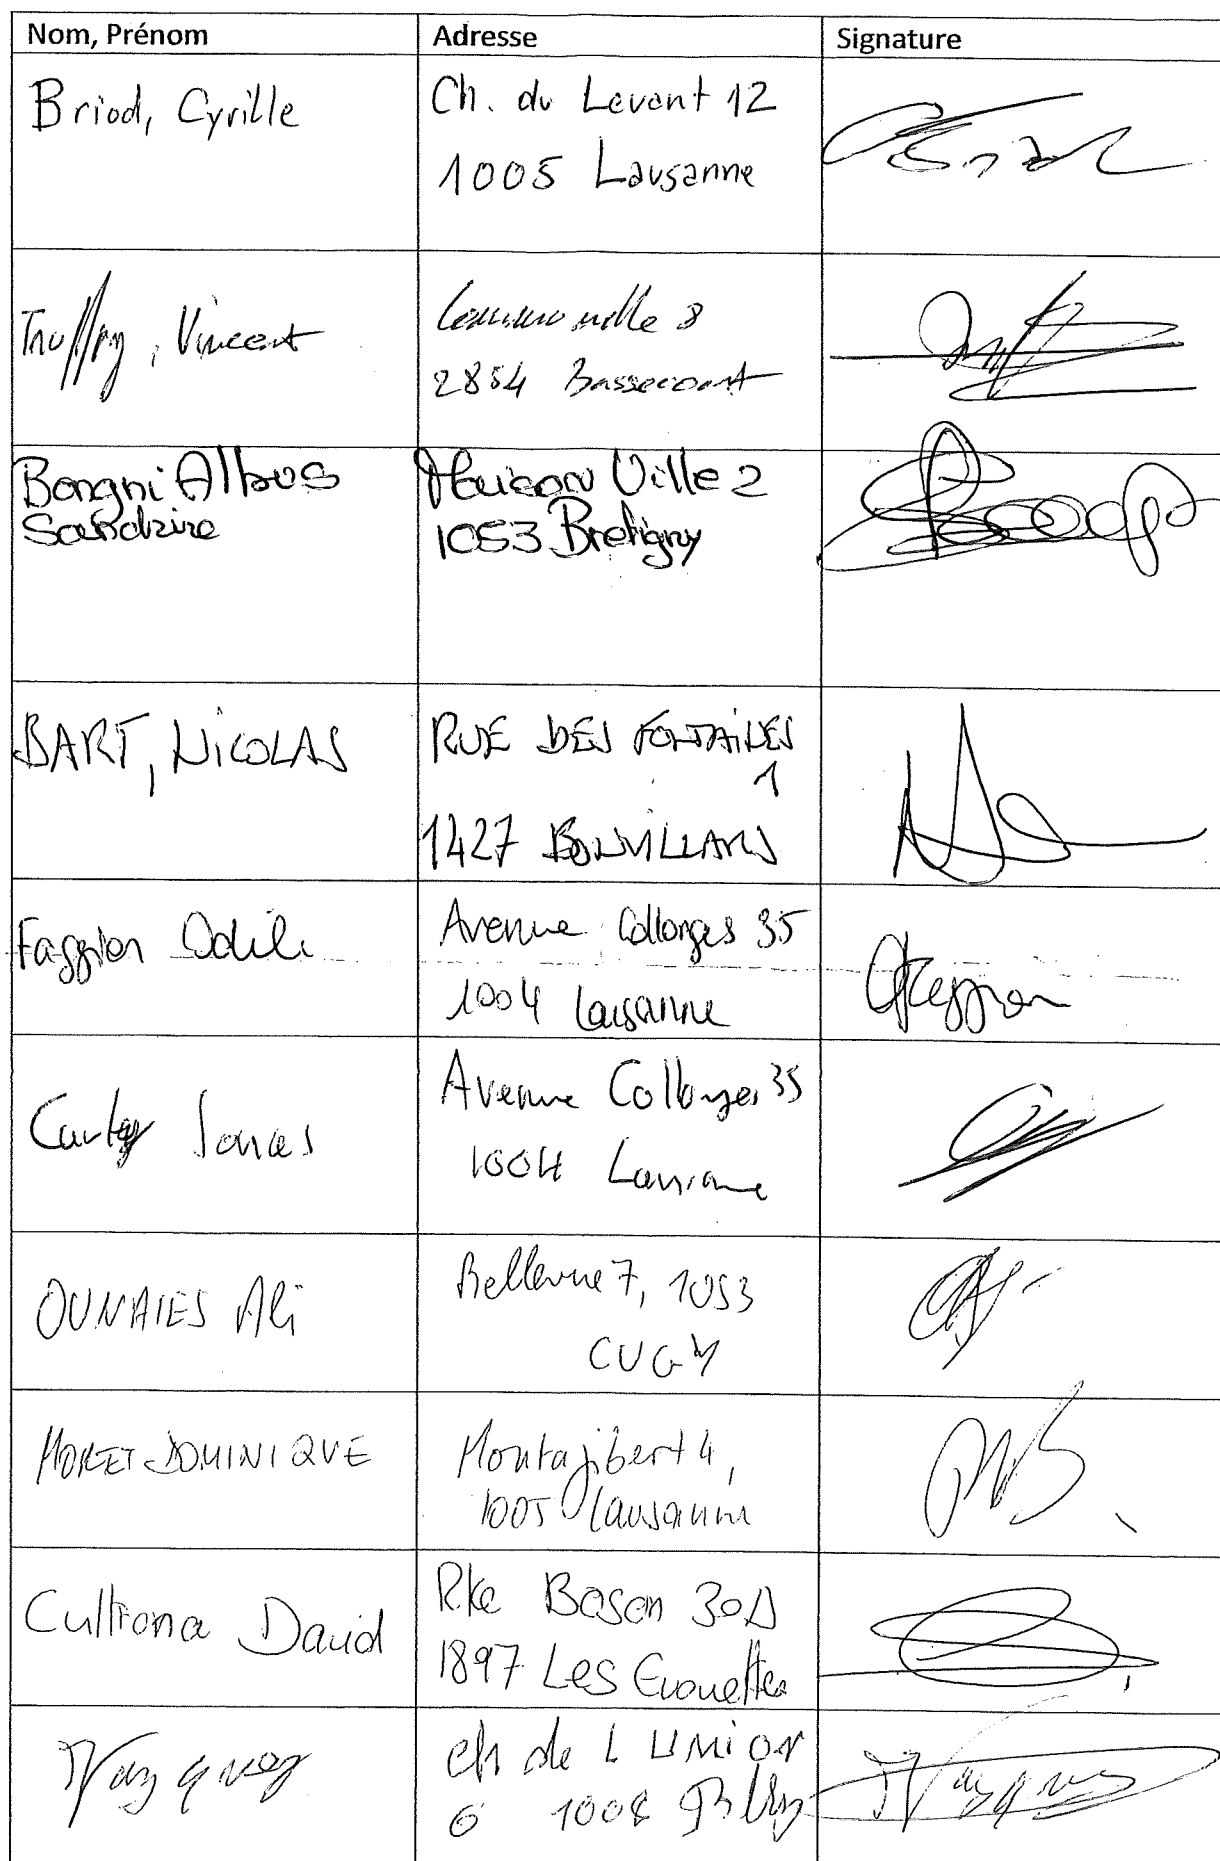 Nom, Prénom
Adresse
Signature
Briod, Cyrille
Ch. du Levant 12
1005 Lausanne
Vincent
8
2854 Bassecourt
Bongni Albus
Sandrine
Maison Ville 2
1053 Bretigny
BART, NICOLAS
RUE DES FONTAINES
1
1427 BONVILLARS
Faggion Odile
Avenue Collonges 35
1004 Lausanne
Jonas
Avenue Collonges 35
1004 Lausanne
OUNAIES Ali
Bellevue 7, 1053
CUGY
MORET DOMINIQUE
Montagibert 4,
1005 Lausanne
Cultrona David
Rte Boson 30A
1897 Les Evouettes
Vazquez
ch de L Union
6 1008